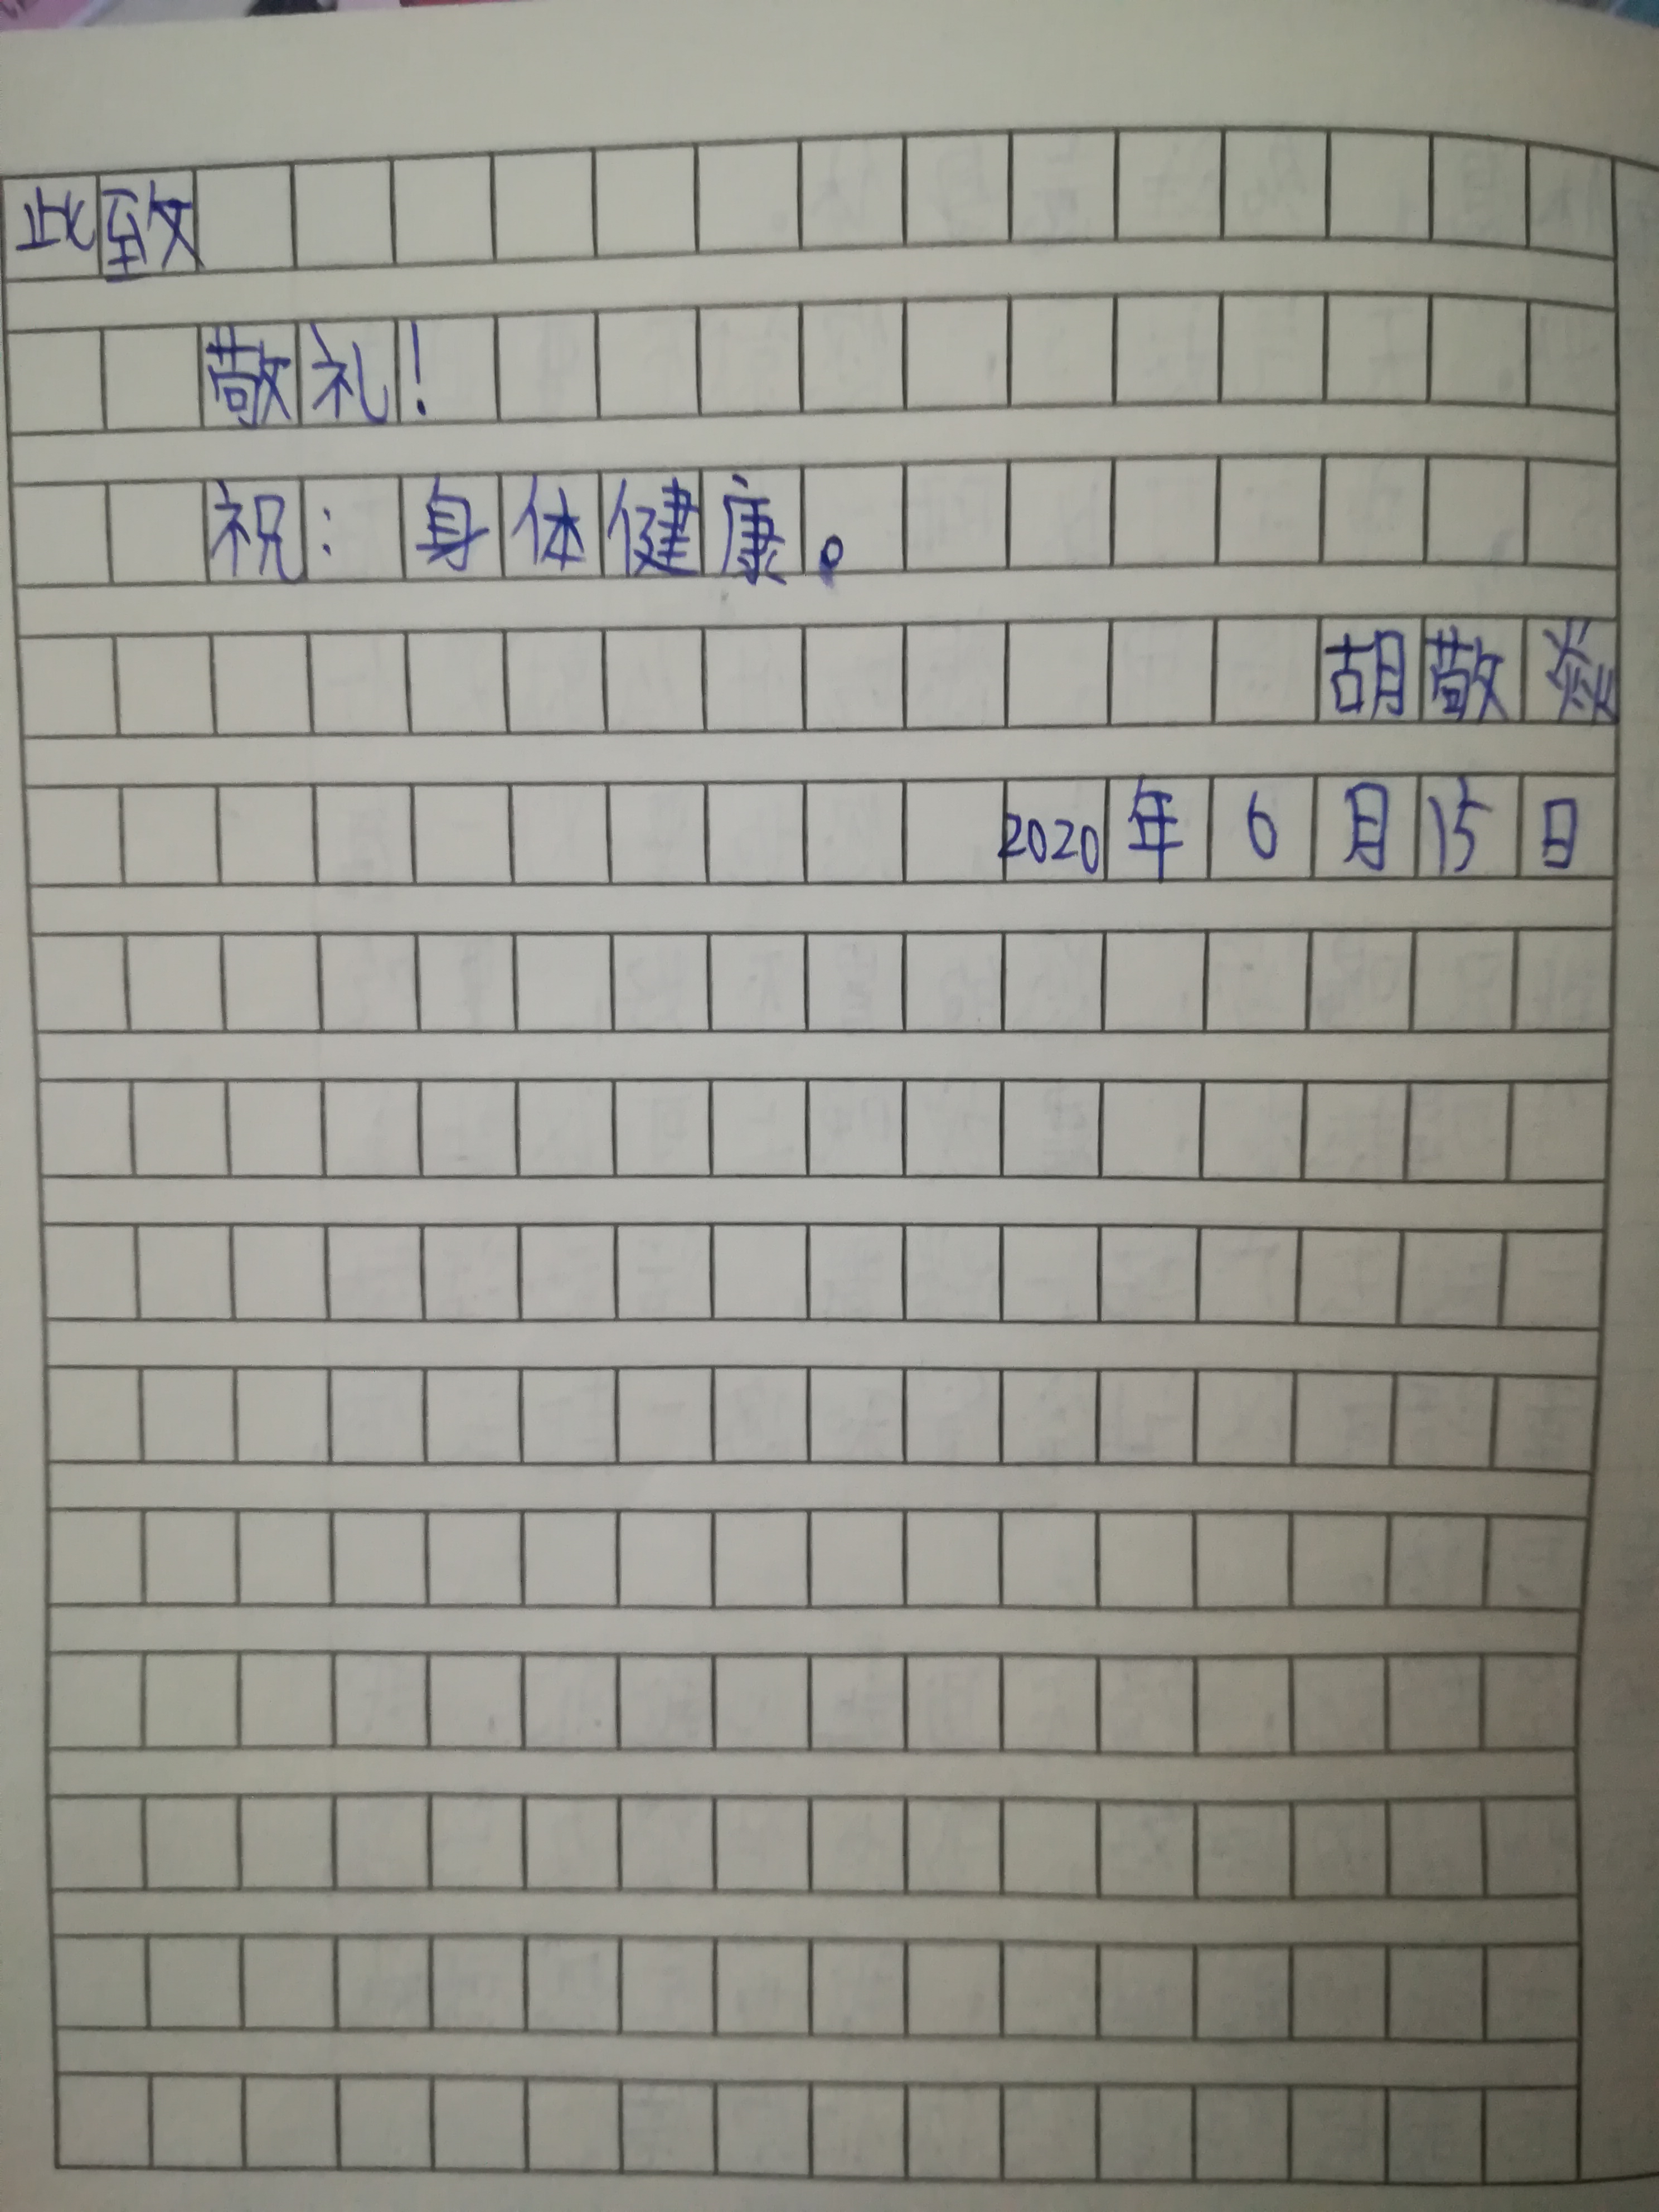 此致
敬礼！
祝：身体健康。
胡敬焱
2020年6月15日